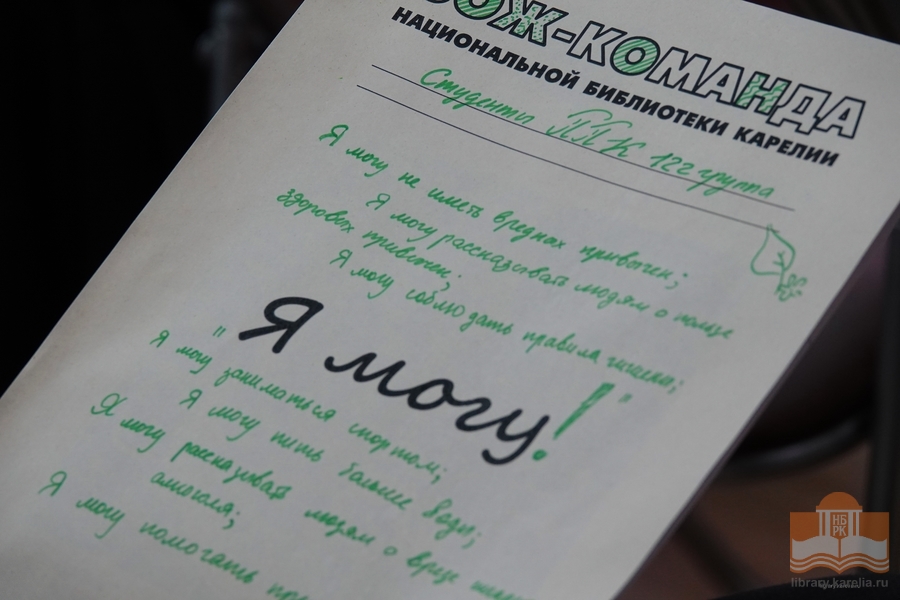 ЗОЖ-КОМАНДА
НАЦИОНАЛЬНОЙ БИБЛИОТЕКИ КАРЕЛИИ
Студенты ПТК 122 группа
Я могу не иметь вредных привычек;
Я могу рассказывать людям о пользе
здоровых привычек;
Я могу соблюдать правила гигиены;
"Я могу!"
Я могу заниматься спортом;
Я могу пить больше воды;
Я могу рассказывать людям о вреде
алкоголя;
Я могу помогать
НБ
РК
library.karelia.ru